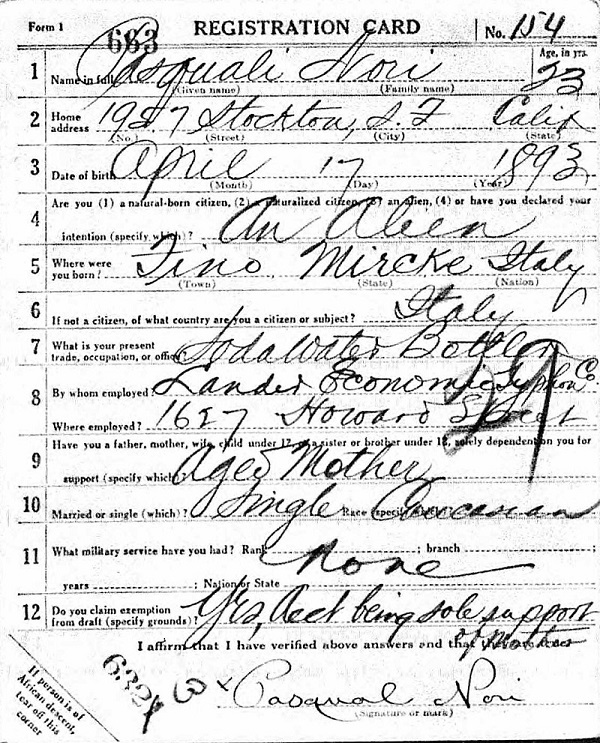 Form 1
663 REGISTRATION CARD No. 154
1 Name in full Pasquali Nori Age, in yrs. 23
(Given name) (Family name)
2 Home address 1957 Stockton, S.F Calif
(No.) (Street) (City) (State)
3 Date of birth April 17 1893
(Month) (Day) (Year)
4 Are you (1) a natural-born citizen, (2) a naturalized citizen, (3) an alien, (4) or have you declared your
intention (specify which)? An Alien
5 Where were you born? Fino Mircke Italy
(Town) (State) (Nation)
6 If not a citizen, of what country are you a citizen or subject? Italy
7 What is your present trade, occupation, or office? Soda Water Bottler
8 By whom employed? Lander Economic Syphon Co.
Where employed? 1627 Howard Street
9 Have you a father, mother, wife, child under 12, or a sister or brother under 18, solely dependent on you for
support (specify which)? Aged Mother
10 Married or single (which)? Single Race (specify which)? Caucasian
11 What military service have you had? Rank None ; branch ;
years ; Nation or State
12 Do you claim exemption from draft (specify grounds)? Yes, acct being sole support
of Mother
I affirm that I have verified above answers and that they are true
632 3 x Pasqual Nori
(Signature or mark)
If person is of
African descent,
tear off this
corner